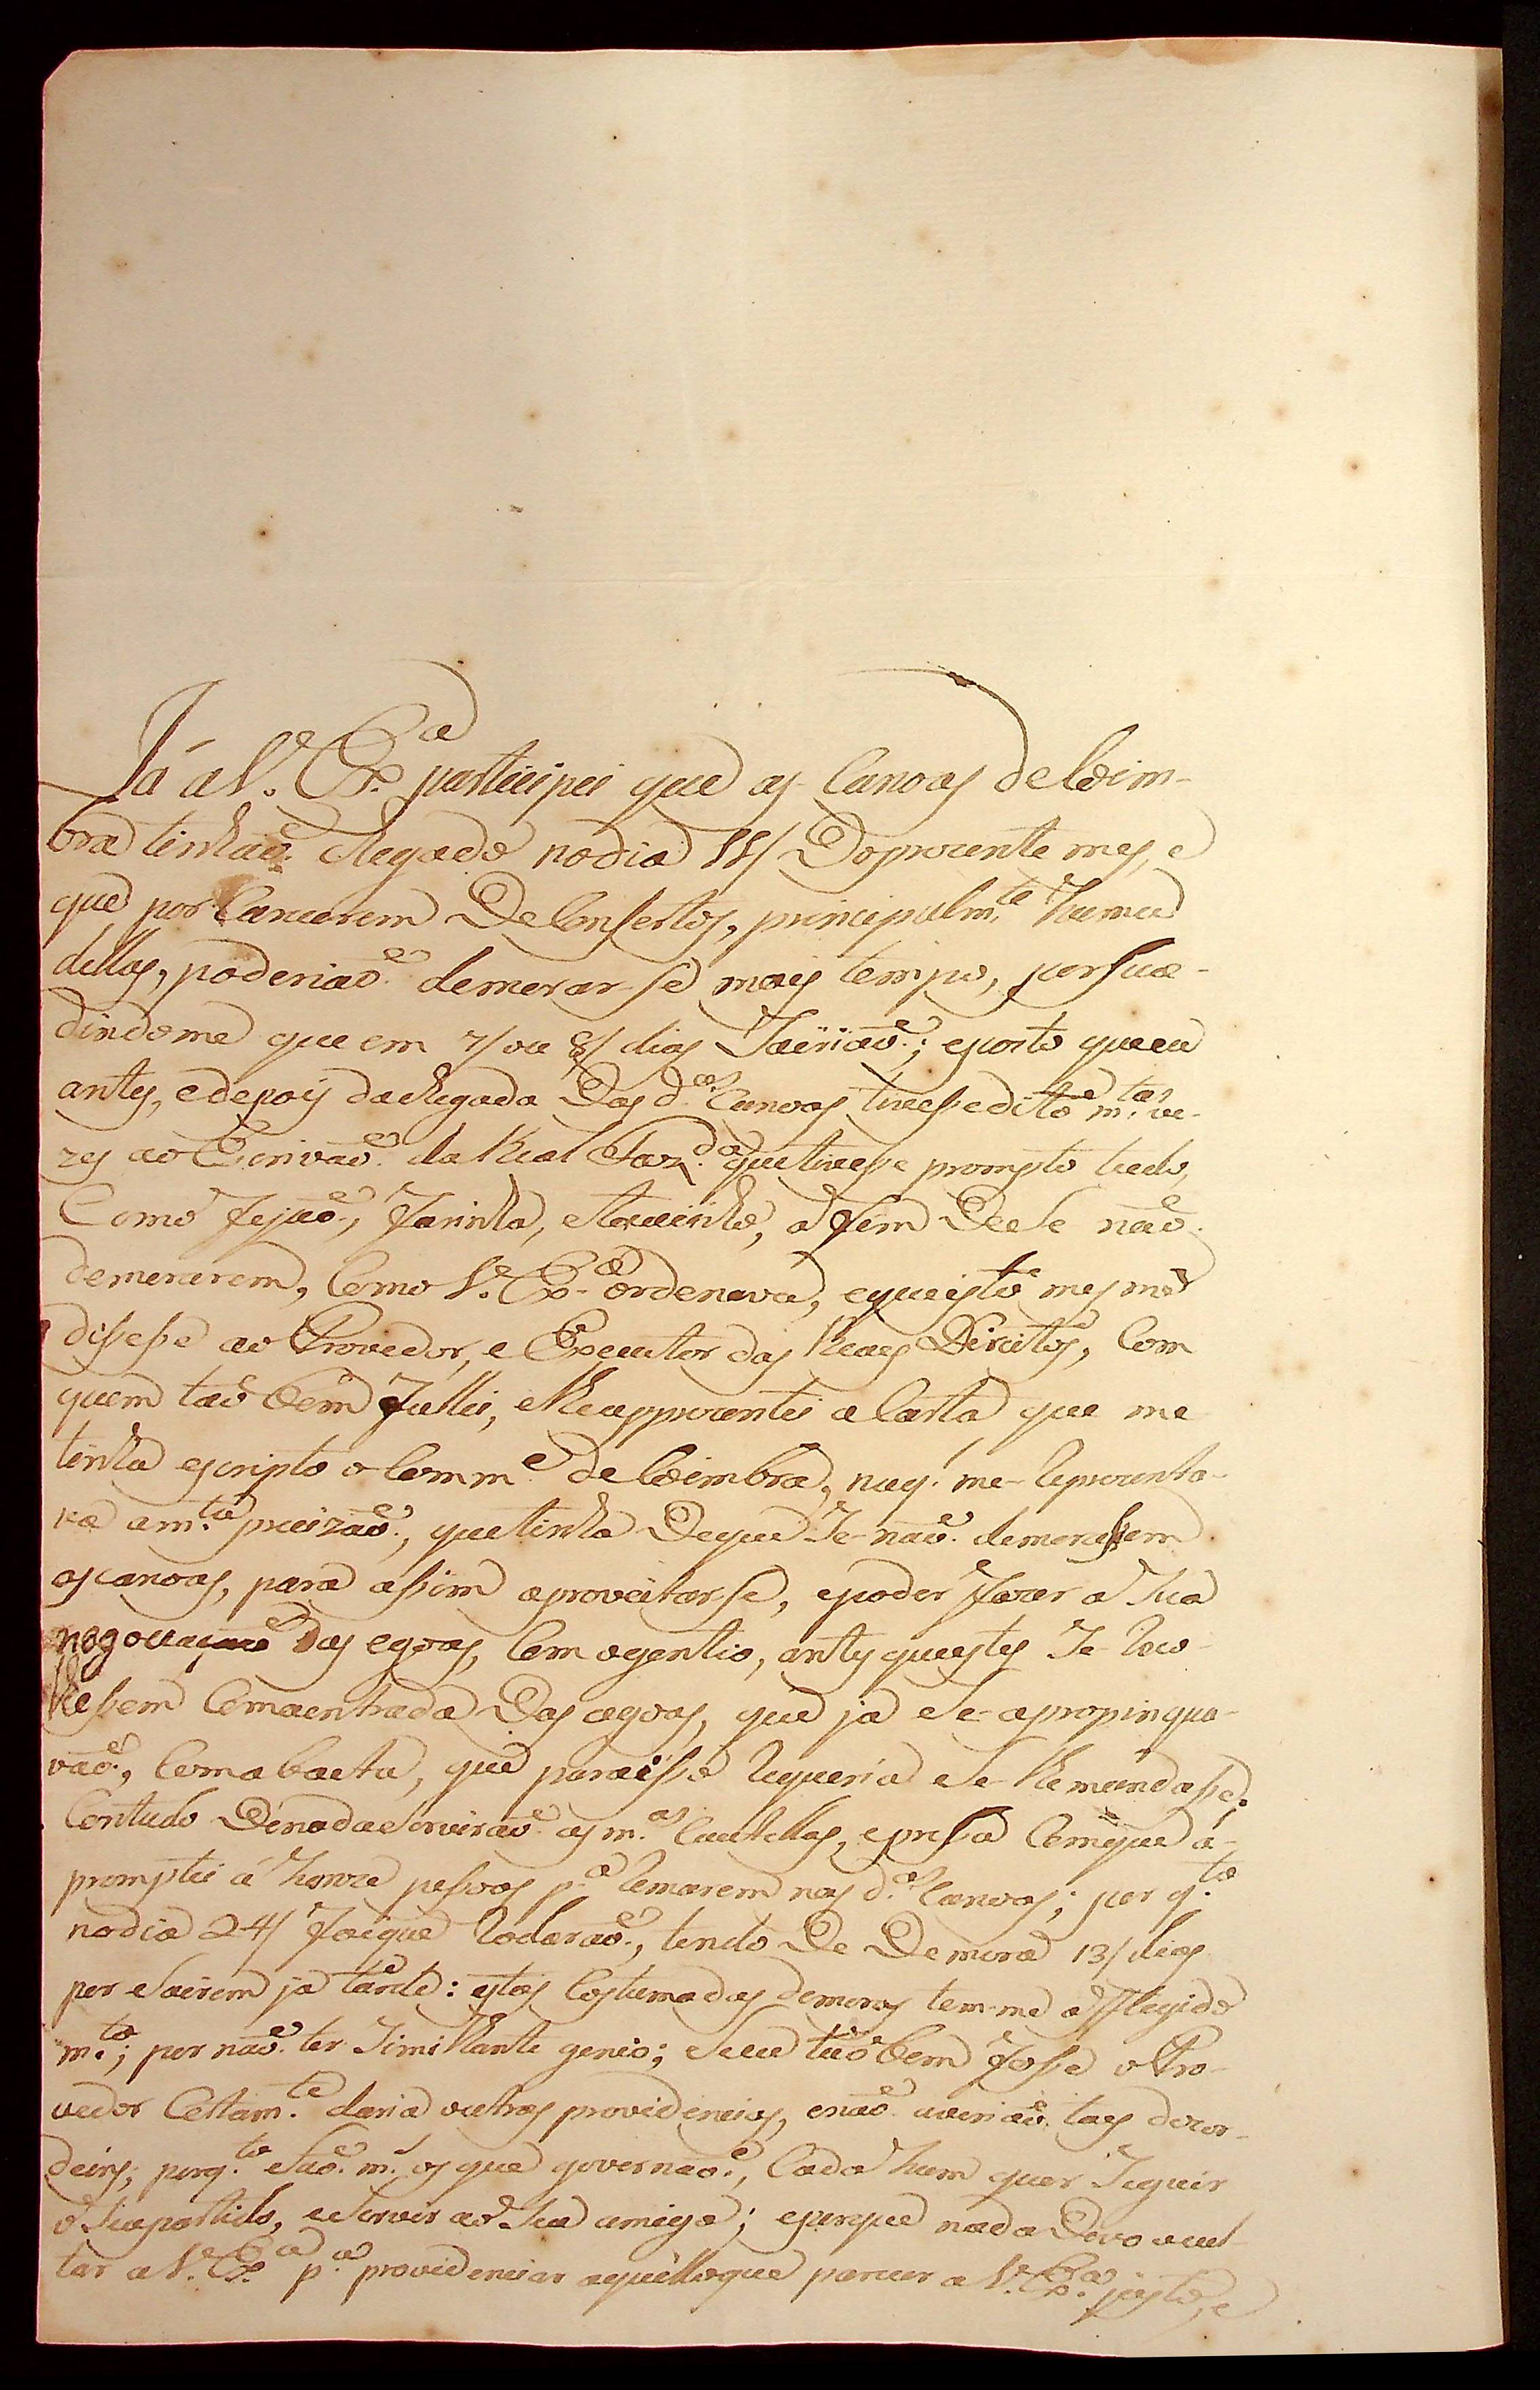 Já a V. Ex.ª participei que as Canoas de Coim-
bra tinhaõ chegado no dia 11/ do prezente mes, e
que por Carecerem De Consertos, principalm.te huma
dellas, poderiaõ demorar-se mais tempo, persua-
dindome que em 7/ ou 8/ dias Sairiaõ; e posto que eu
antes, e depois da chegada Das d.as Canoas tivesse dito m.tas ve-
zes ao Escrivaõ da Real Faz.da que tivesse prompto tudo,
Como Fejaõ, Farinha, e Toucinho, a fim De Se naõ
demorarem, Como V. Ex.ª ordenava, e que isto mesmo
dissesse ao Provedor, e Executor dos Reaes Direitos, Com
quem taõ bem Fallei, e lhe apprezentei a Carta que me
tinha escripto o Comm.e de Coimbra, na q.' me-Reprezenta-
va a m.ta precizaõ, que tinha De que Se-naõ demorassem
as canoas, para assim aproveitar-se, e poder Fazer a Sua
negociaçaõ Das egoas, Com o gentio, antes que estes Se-Reco-
lhessem Com a entrada Das agoas, que já Se-apropinqua-
vaõ, Com a baeta, que para isso Requeria Se-lhe mandasse;
Contudo De nada Serviraõ as m.as Cautellas, e pressa Com que a-
promptei a honze pessoas p.ª Remarem nas d.as Canoas; por q.to
no dia 24/ Foi que Rodaraõ, tendo De Demora 13/ dias
por Sairem já tarde: estas Costumadas demoras tem-me afflegido
m.to; por naõ ter Similhante genio; e Se eu taõ bem Fosse o Pro-
vedor Certam.te daria outras providencias, e naõ averiaõ taes dezor-
deins; porq.to Saõ m.' os que governaõ, Cada hum quer Seguir
o Seu partido, e Servir ao Seu amigo; e porque nada Devo ocul-
tar a V. Ex.ª p.ª providenciar aquillo que parecer a V. Ex.ª justo, e